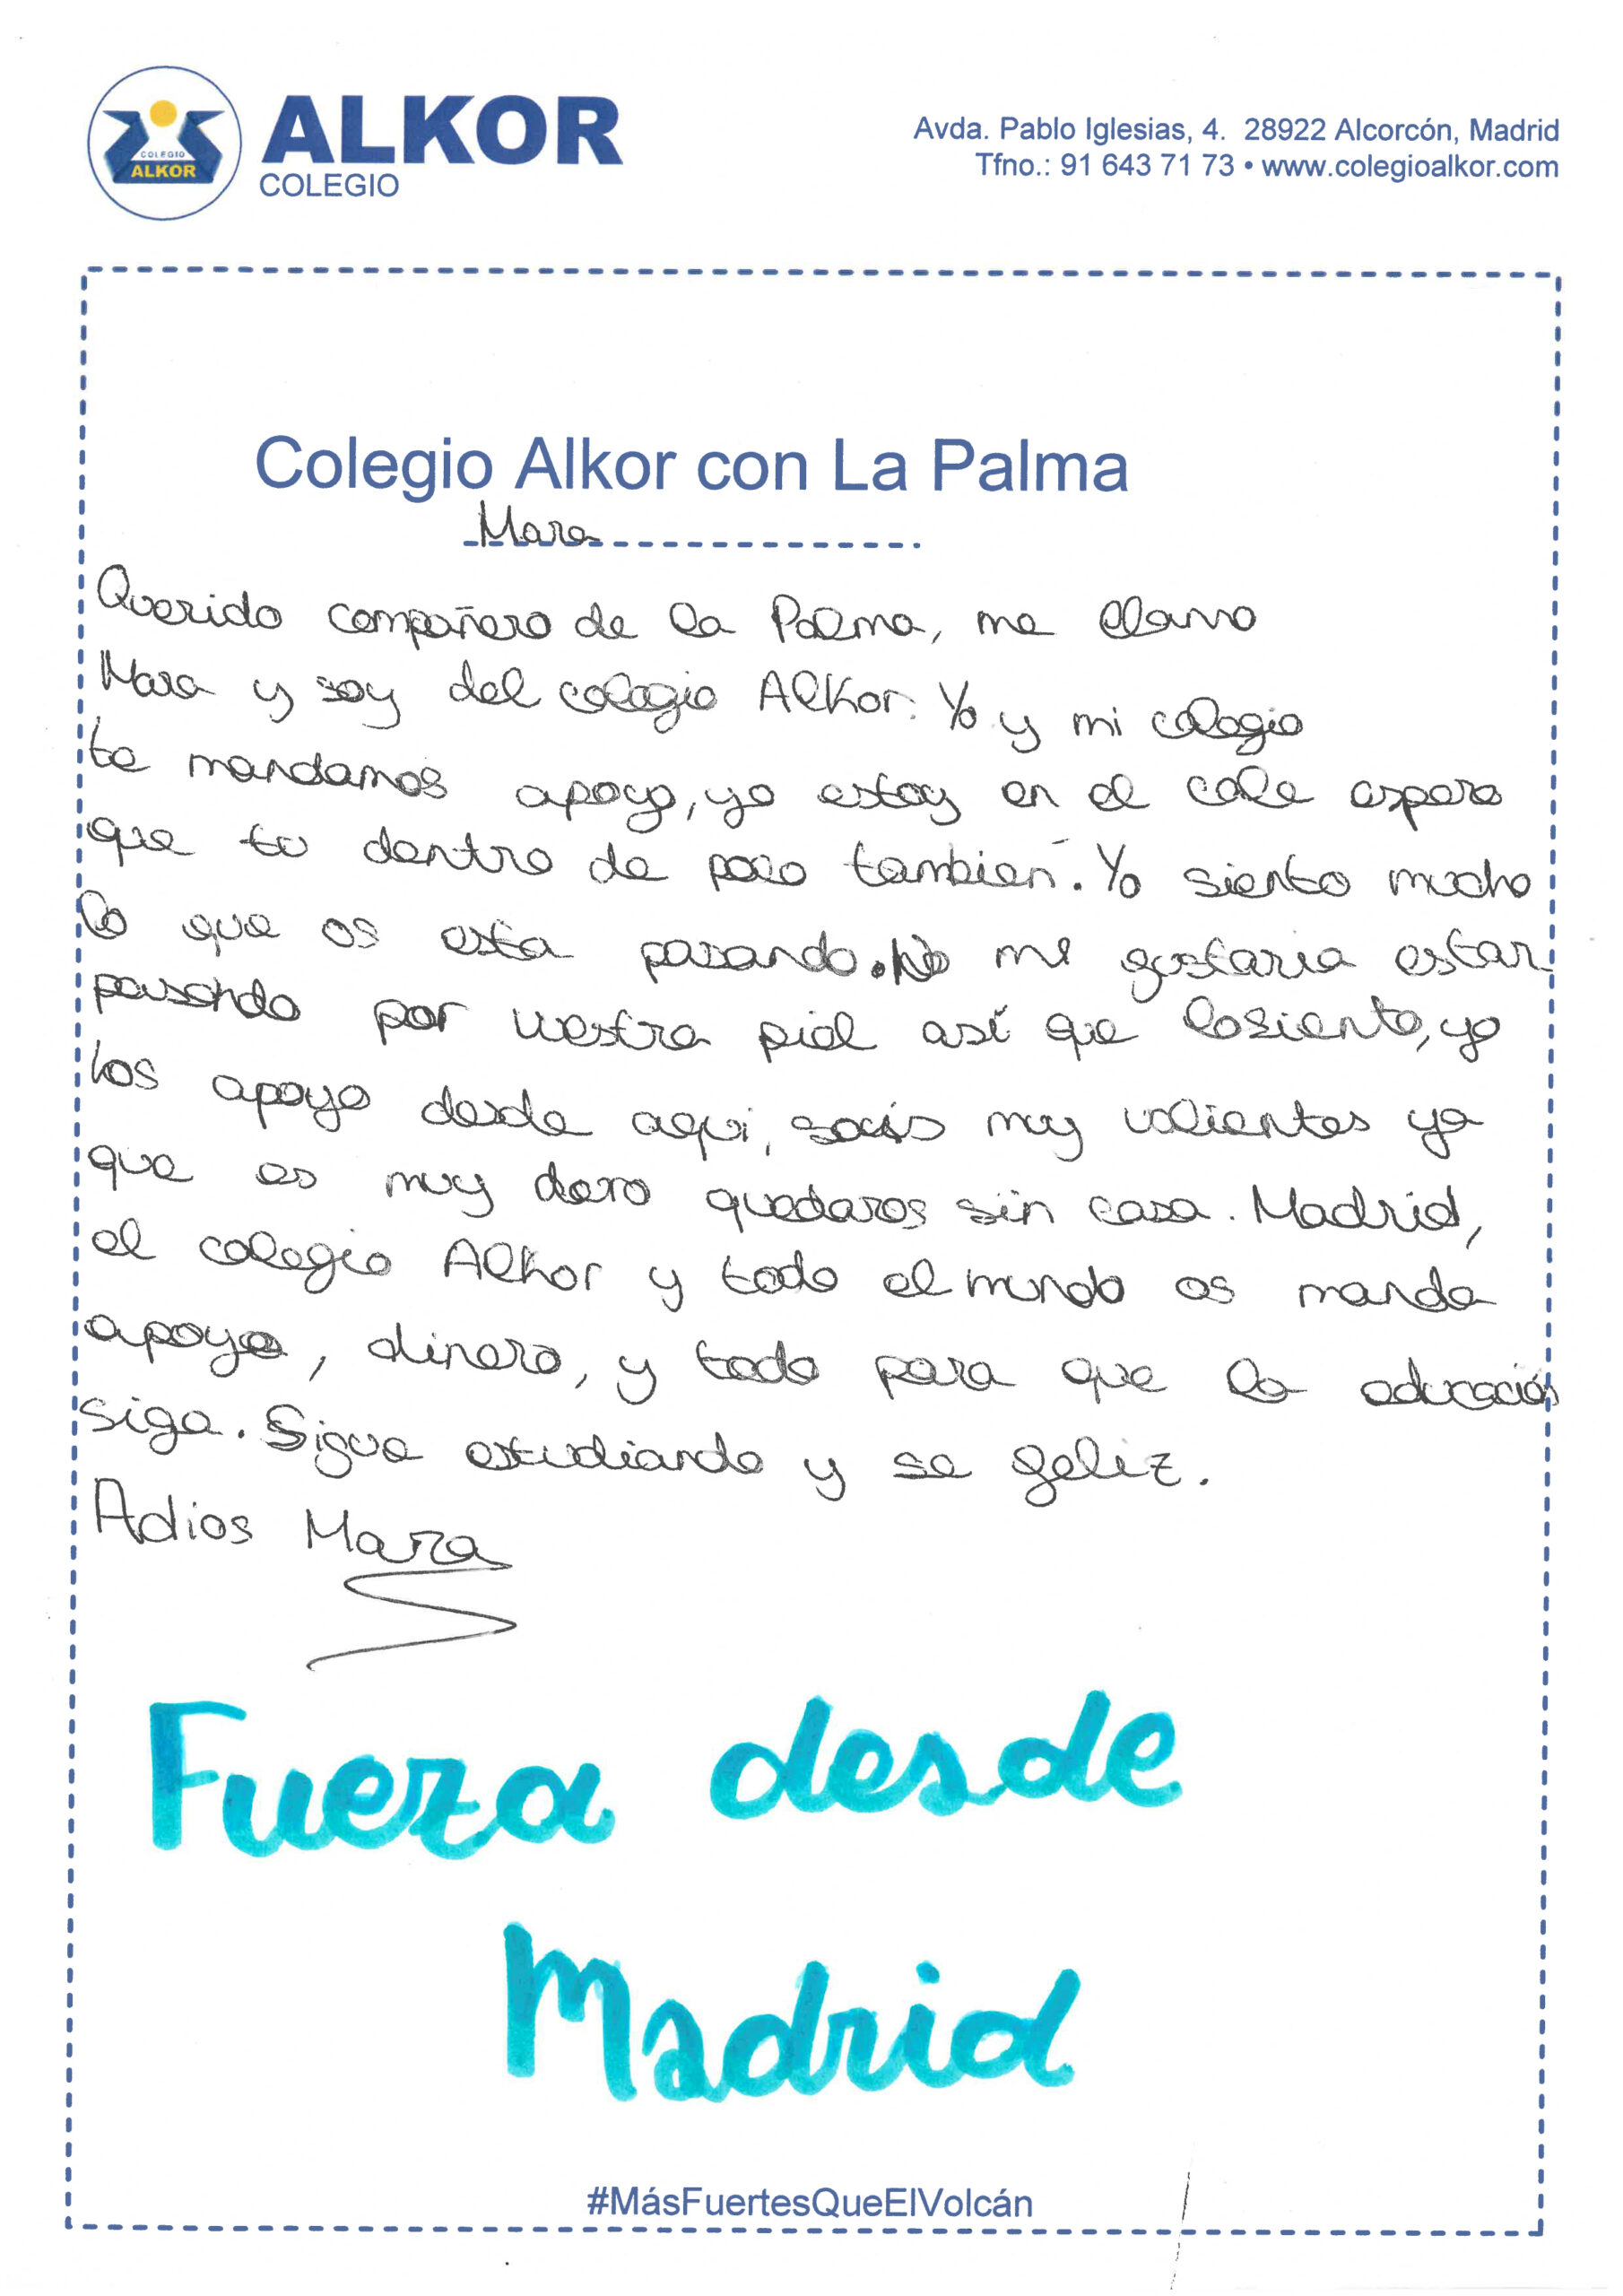 COLEGIO
ALKOR
ALKOR
COLEGIO
Avda. Pablo Iglesias, 4. 28922 Alcorcón, Madrid
Tfno.: 91 643 71 73 • www.colegioalkor.com
Colegio Alkor con La Palma
Mara
Querido compañero de la Palma, me llamo
Mara y soy del colegio Alkor. Yo y mi colegio
te mandamos apoyo, yo estoy en el cole espero
que tu dentro de poco tambien. Yo siento mucho
lo que os esta pasando. No me gustaria estar
pasando por vuestra piel así que losiento, yo
los apoyo desde aqui, sois muy valientes ya
que es muy duro quedaros sin casa. Madrid,
el colegio Alkor y todo el mundo os manda
apoyo, dinero, y todo para que la educación
siga. Sigue estudiando y se feliz.
Adios Mara
Fueza desde
Madrid
#MásFuertesQueElVolcán